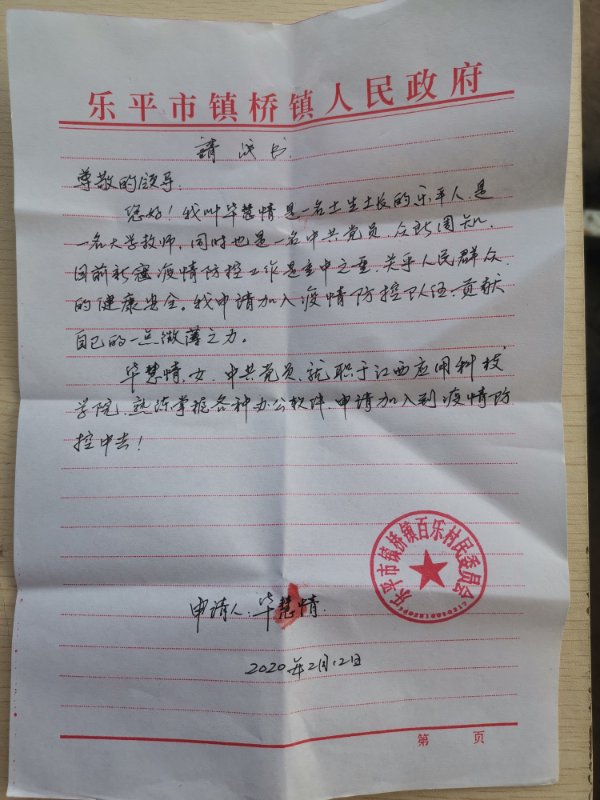 乐平市镇桥镇人民政府
请战书
尊敬的领导
您好！我叫毕慧情是一名土生土长的乐平人.是
一名大学教师，同时也是一名中共党员.众所周知.
目前新冠疫情防控工作是重中之重.关乎人民群众
的健康安全。我申请加入疫情防控队伍.贡献
自己的一点微薄之力。
毕慧情，女.中共党员.就职于江西应用科技
学院.熟练掌握各种办公软件.申请加入到疫情防
控中去！
乐平市镇桥镇百乐村民委员会
申请人：毕慧情.
2020年2月12日
第 页